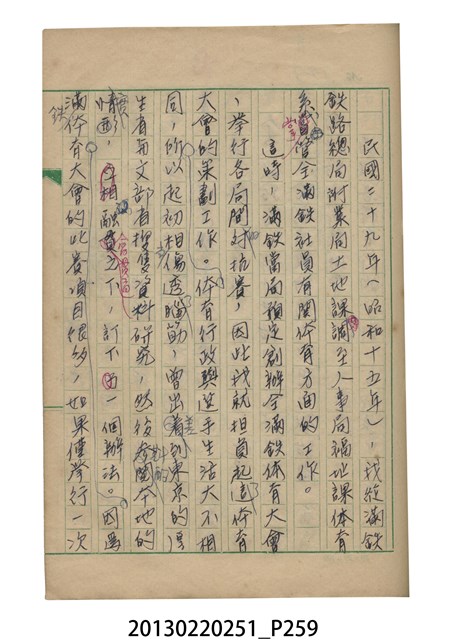 民國二十九年（昭和十五年），我從滿鉄
鉄路總局附業局土地課調至人事局福祉課体育
系，掌管全滿鉄社員有関体育方面的工作。
這時，滿鉄當局預定創辦全滿鉄体育大會
，舉行各局間対抗賽，因此我就担負起這体育
大會的策劃工作。体育行政與選手生活大不相
同，所以起初相傷透腦筋，曾出差到東京的厚
生省与文部省搜集資料研究，然後参酌本地的
情形，相融會貫通之下，訂下一個辦法。因為
滿鉄体育大會的比賽項目很多，如果僅舉行一次
20130220251_P259